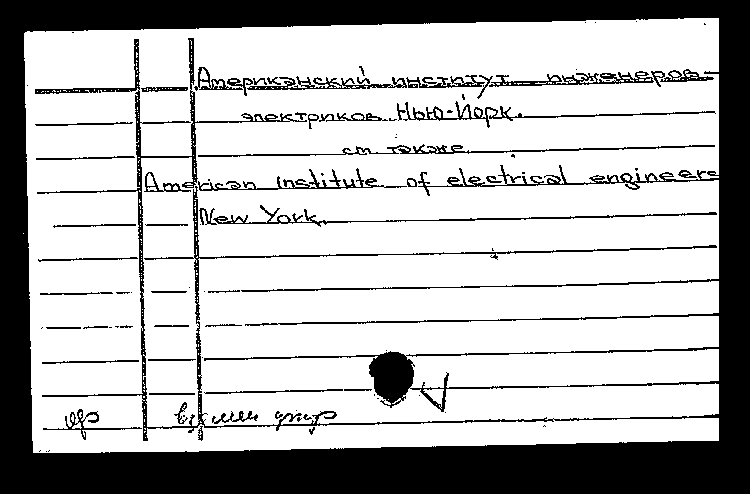 Американский институт инженеров-
электриков. Нью-Йорк.
см. также
American institute of electrical engineers
New York.